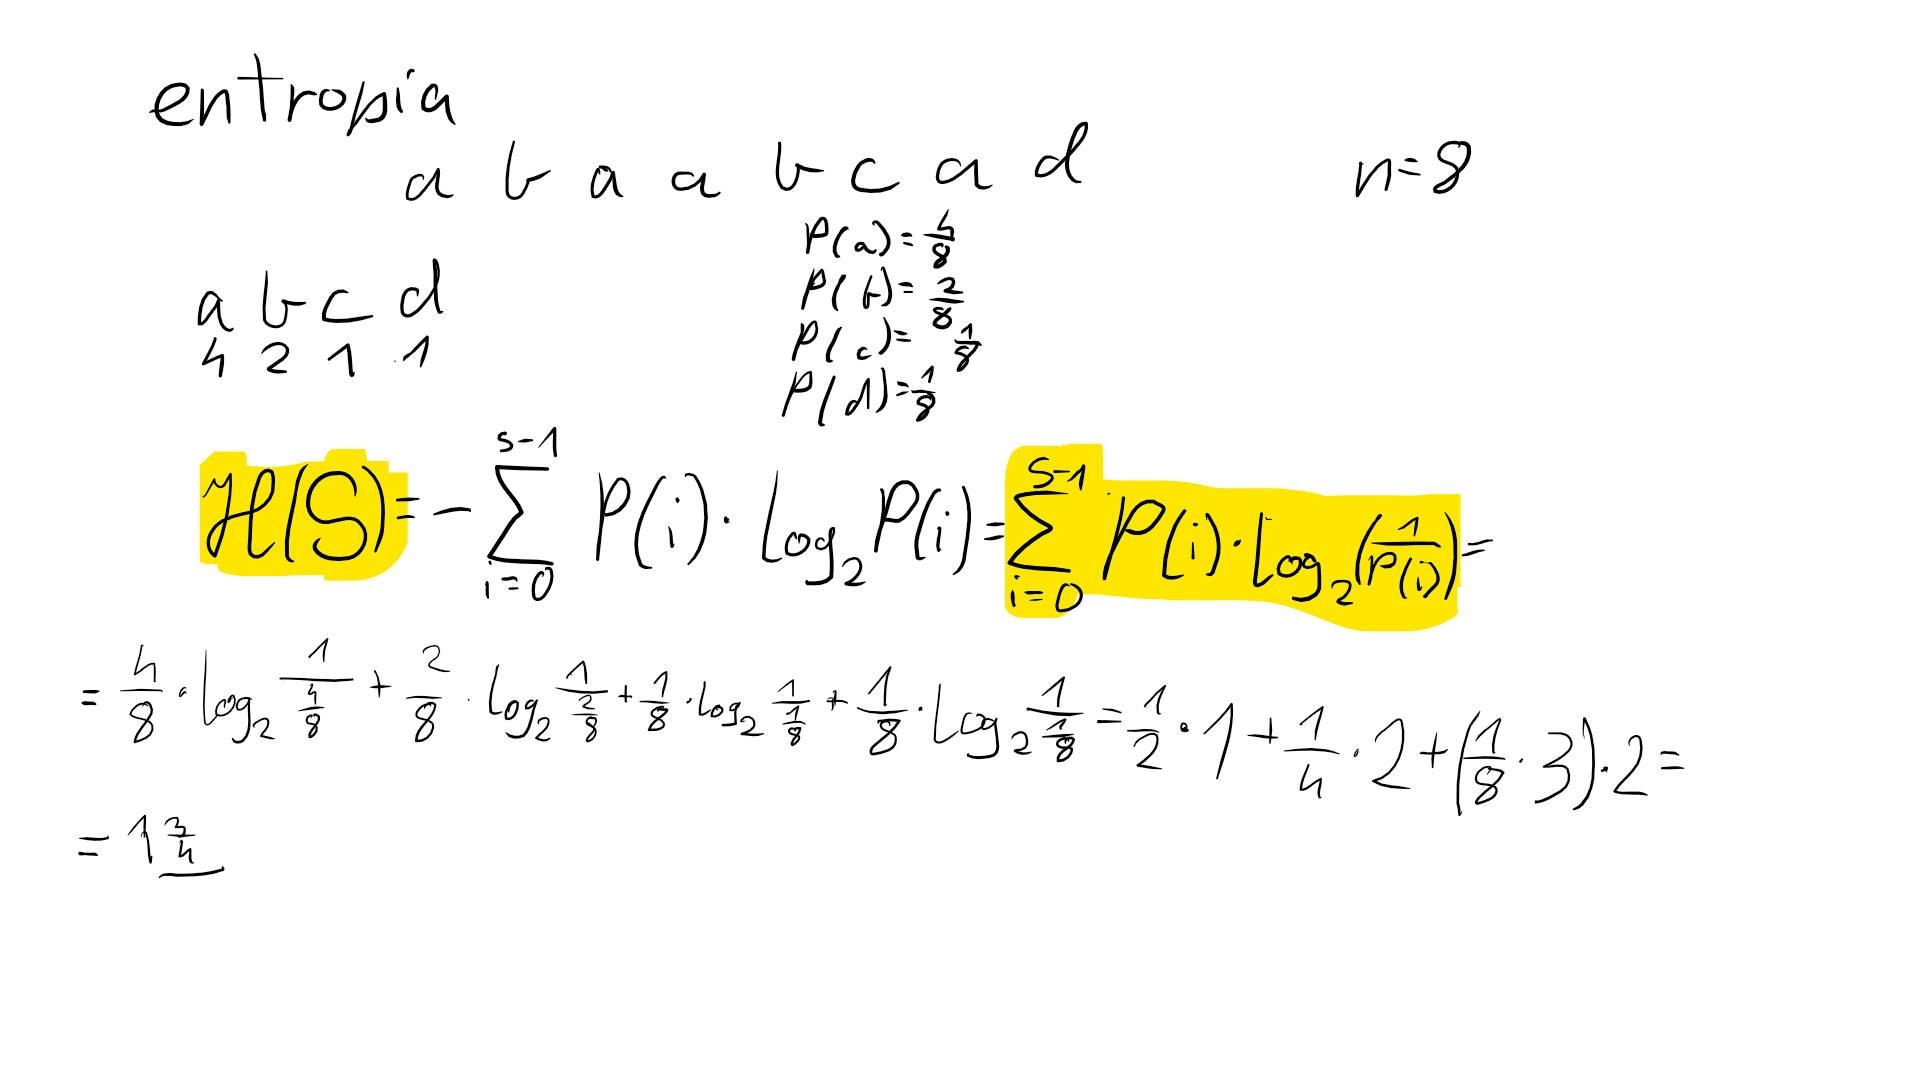 entropia
a b a a b c a d n=8
P(a)=4/8
P(b)=2/8
a b c d
P(c)=1/8
4 2 1 1
P(d)=1/8
H(S)= -∑_{i=0}^{s-1} P(i)·log₂P(i)=∑_{i=0}^{s-1} P(i)·log₂(1/P(i))=
= 4/8·log₂ 1/(4/8) + 2/8·log₂ 1/(2/8) + 1/8·log₂ 1/(1/8) + 1/8·log₂ 1/(1/8) = 1/2·1+1/4·2+(1/8·3)·2=
= 1 3/4